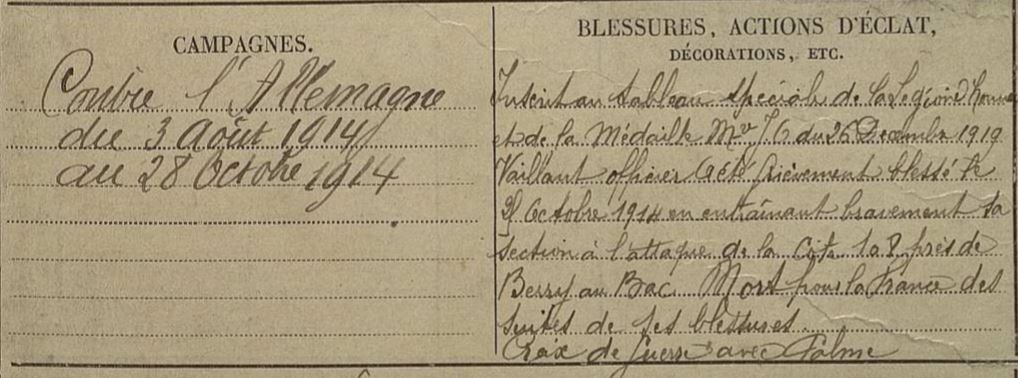 CAMPAGNES.
Contre l'Allemagne
du 3 Août 1914
au 28 Octobre 1914
BLESSURES, ACTIONS D'ÉCLAT,
DÉCORATIONS, ETC.
Inscrit au tableau spécial de la Légion d'honneur
et de la Médaille Mre J.O du 26 Décembre 1919
Vaillant officier a été Grièvement blessé le
Octobre 1914 en entraînant bravement sa
section à l'attaque de la Cote 108 près de
Berry au Bac. Mort pour la France des
suites de ses blessures.
Croix de Guerre avec Palme